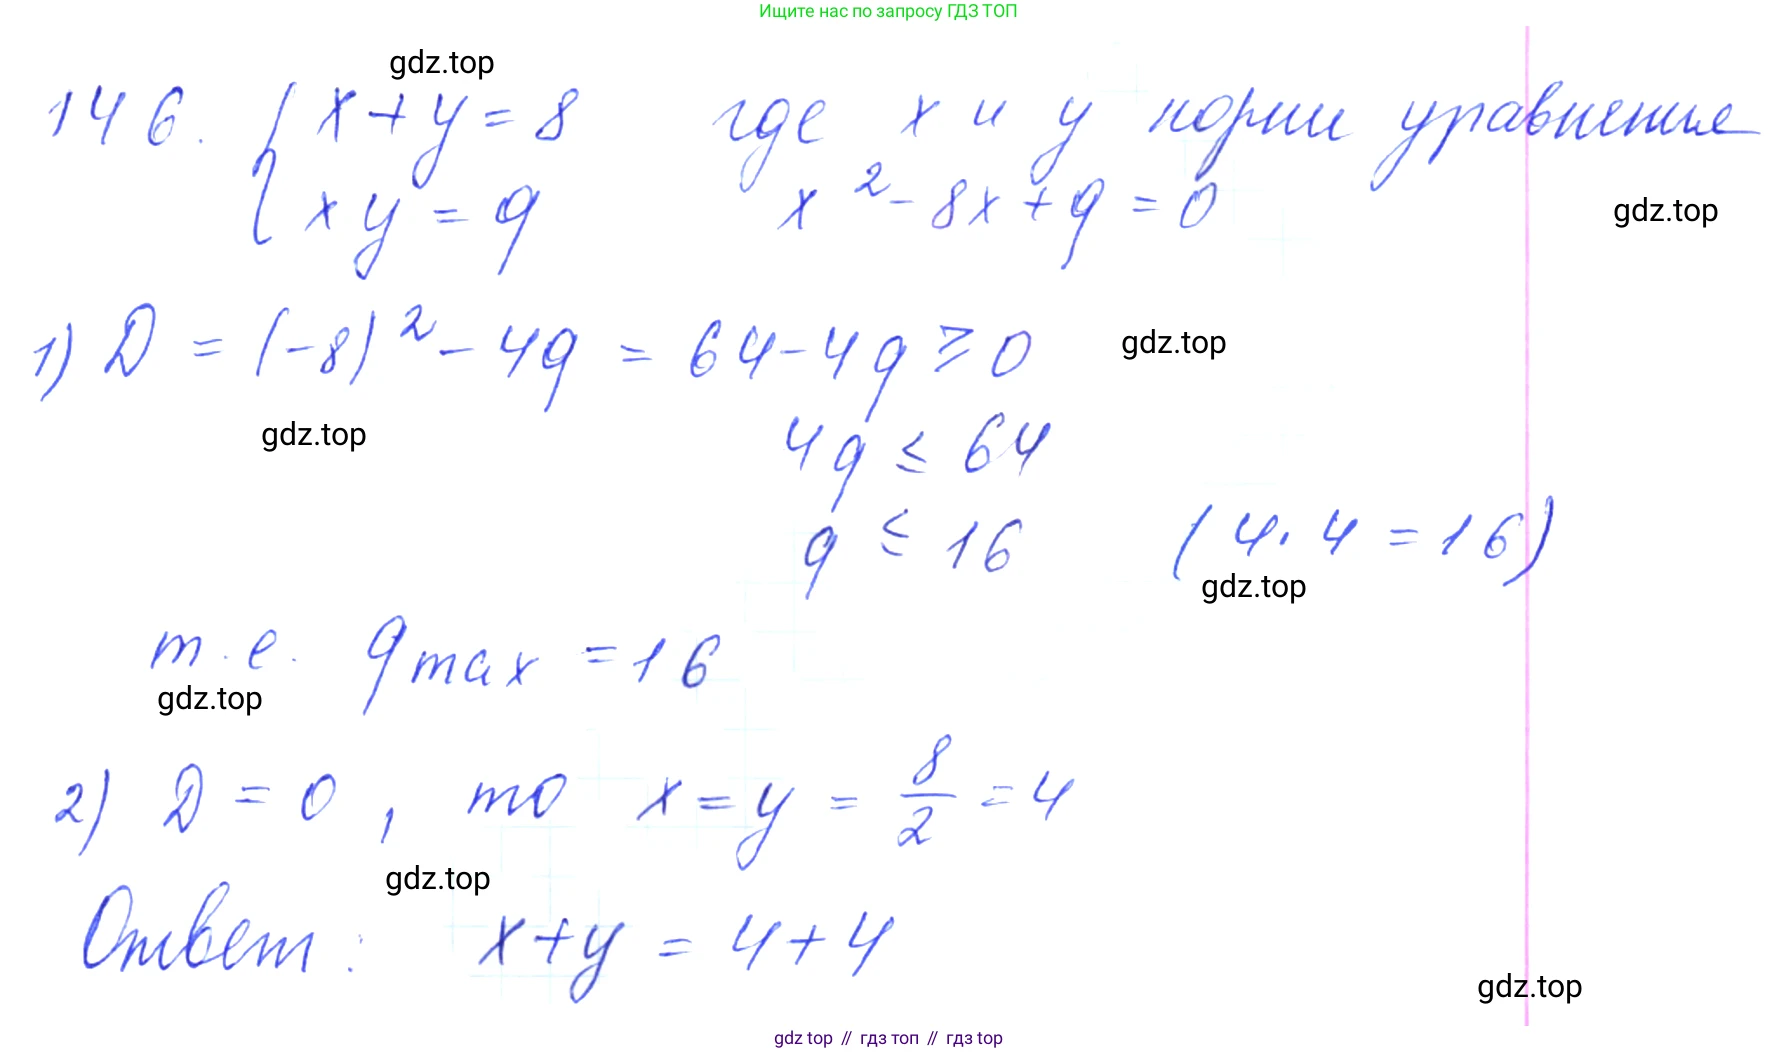 Ищите нас по запросу ГДЗ ТОП
gdz.top
146. { x + y = 8 где x и y корни уравнения
xy = q x² - 8x + q = 0
gdz.top
1) D = (-8)² - 4q = 64 - 4q ≥ 0
gdz.top
gdz.top
4q ≤ 64
q ≤ 16 (4·4 = 16)
gdz.top
т.е. q max = 16
gdz.top
2) D = 0, то x = y = 8/2 = 4
gdz.top
Ответ: x + y = 4 + 4
gdz.top
gdz top // гдз топ // гдз top